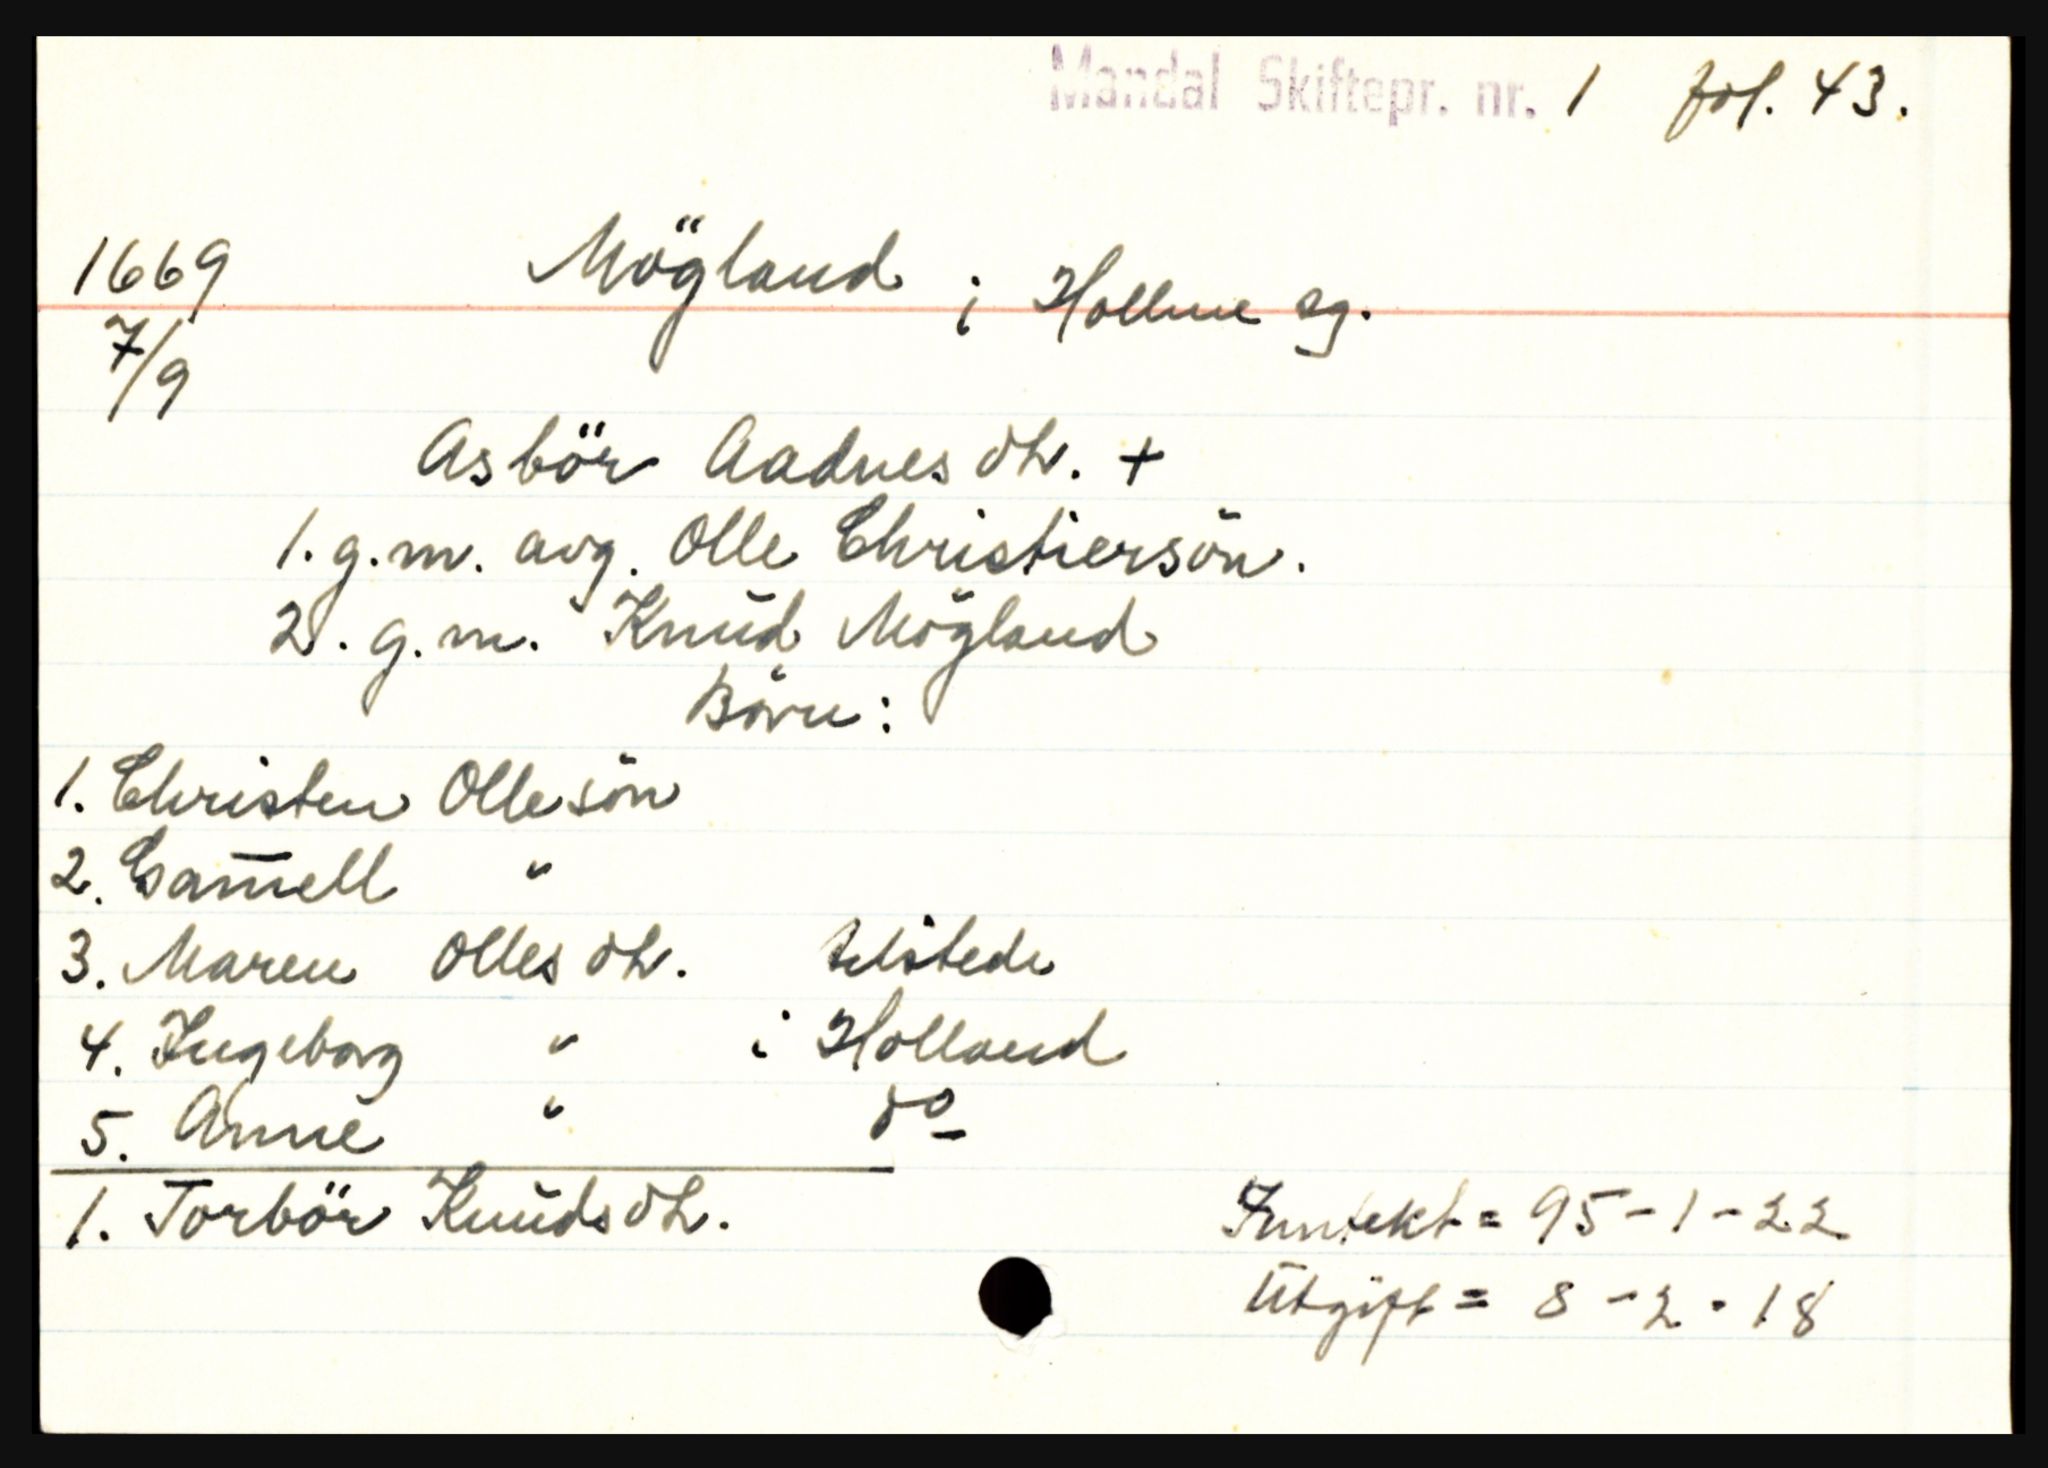 Mandal Skiftepr. nr. 1 fol. 43.
1669 Mögland i Hollme sg.
7/9
Asbör Aadnesdtr. +
1. g. m. avg. Olle Christiersön.
2. g. m. Knud Mögland
Börn:
1. Christen Ollesön
2. Gam̄ell "
3. Maren Ollesdtr. tilstede
4. Ingeborg " i Holland
5. Anne " do
1. Torbör Knudsdtr.
Inntekt = 95-1-22
Utgift = 8-2-18